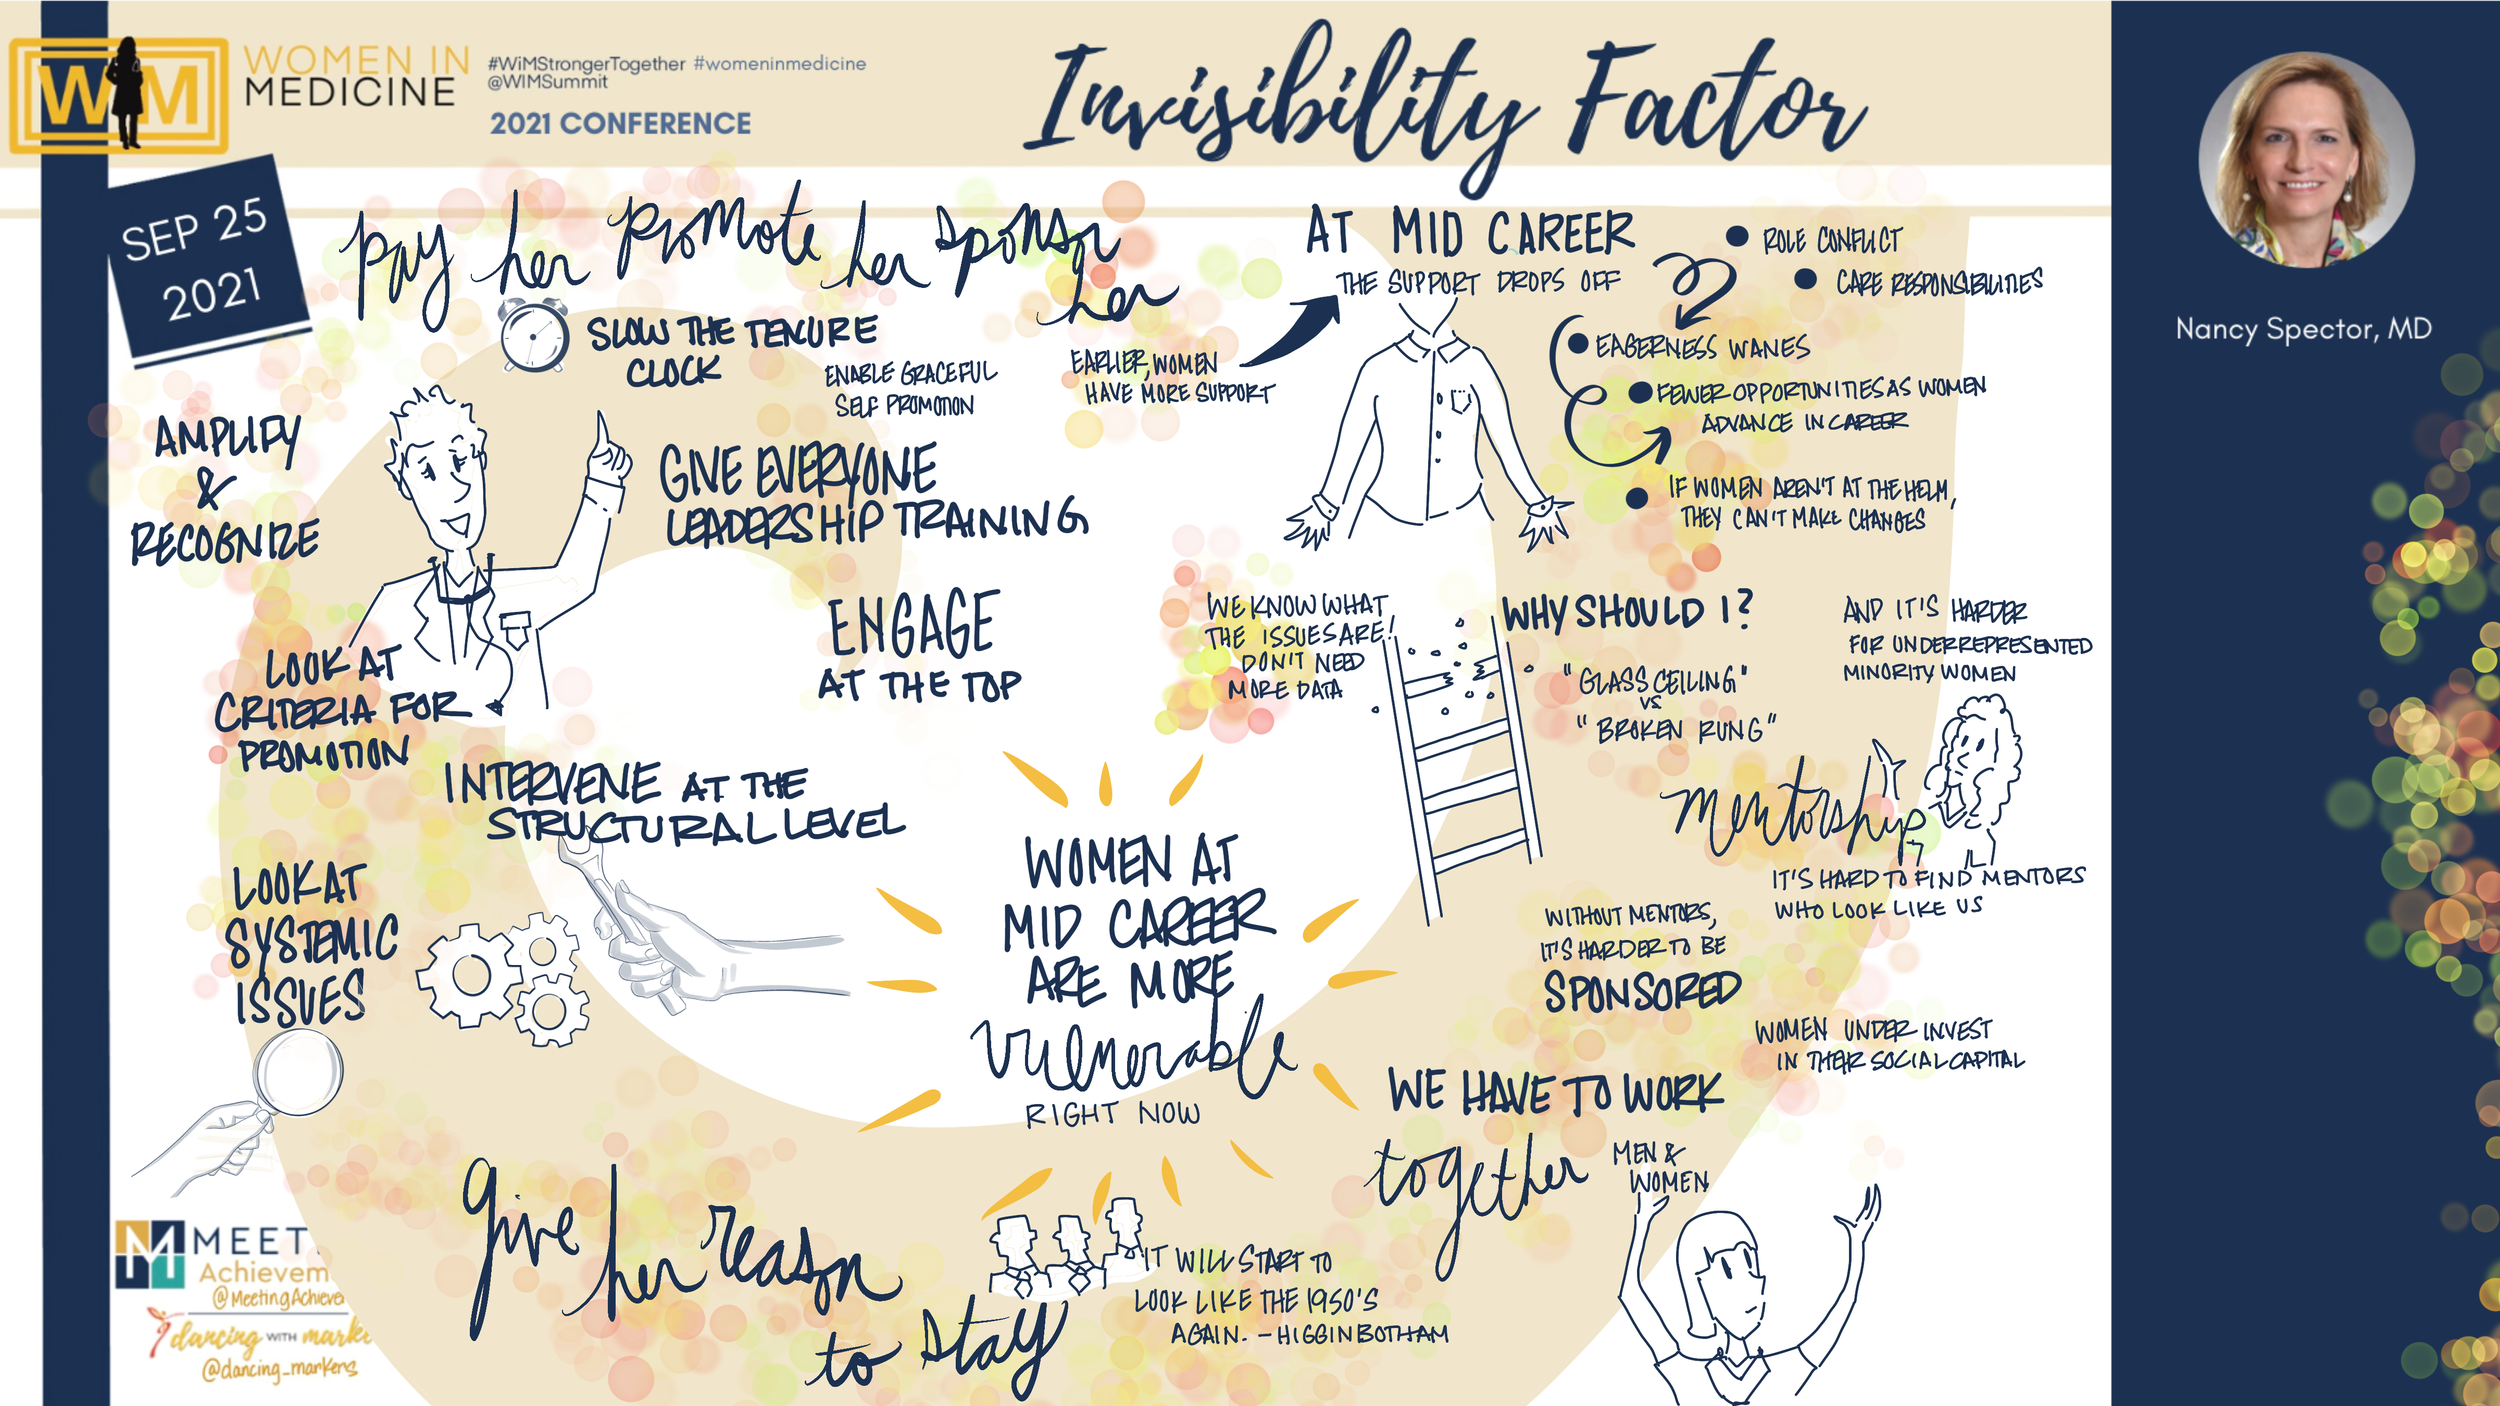 WM
WOMEN IN
MEDICINE
#WiMStrongerTogether #womeninmedicine
@WIMSummit
2021 CONFERENCE
Invisibility Factor
SEP 25
2021
Nancy Spector, MD
pay her promote her sponsor
her
SLOW THE TENURE
CLOCK
ENABLE GRACEFUL
SELF PROMOTION
AMPLIFY
&
RECOGNIZE
GIVE EVERYONE
LEADERSHIP TRAINING
ENGAGE
AT THE TOP
LOOK AT
CRITERIA FOR
PROMOTION
INTERVENE AT THE
STRUCTURAL LEVEL
LOOK AT
SYSTEMIC
ISSUES
EARLIER, WOMEN
HAVE MORE SUPPORT
AT MID CAREER
THE SUPPORT DROPS OFF
ROLE CONFLICT
CARE RESPONSIBILITIES
EAGERNESS WANES
FEWER OPPORTUNITIES AS WOMEN
ADVANCE IN CAREER
IF WOMEN AREN'T AT THE HELM,
THEY CAN'T MAKE CHANGES
WE KNOW WHAT
THE ISSUES ARE!
DON'T NEED
MORE DATA
WHY SHOULD I?
"GLASS CEILING"
VS
"BROKEN RUNG"
AND IT'S HARDER
FOR UNDERREPRESENTED
MINORITY WOMEN
mentorship
IT'S HARD TO FIND MENTORS
WHO LOOK LIKE US
WITHOUT MENTORS,
IT'S HARDER TO BE
SPONSORED
WOMEN UNDER INVEST
IN THEIR SOCIAL CAPITAL
WOMEN AT
MID CAREER
ARE MORE
vulnerable
RIGHT NOW
WE HAVE TO WORK
together
MEN &
WOMEN
give her reason
to stay
IT WILL START TO
LOOK LIKE THE 1950'S
AGAIN. - HIGGINBOTHAM
MEET
Achievem
@MeetingAchieve
dancing WITH marke
@dancing_markers